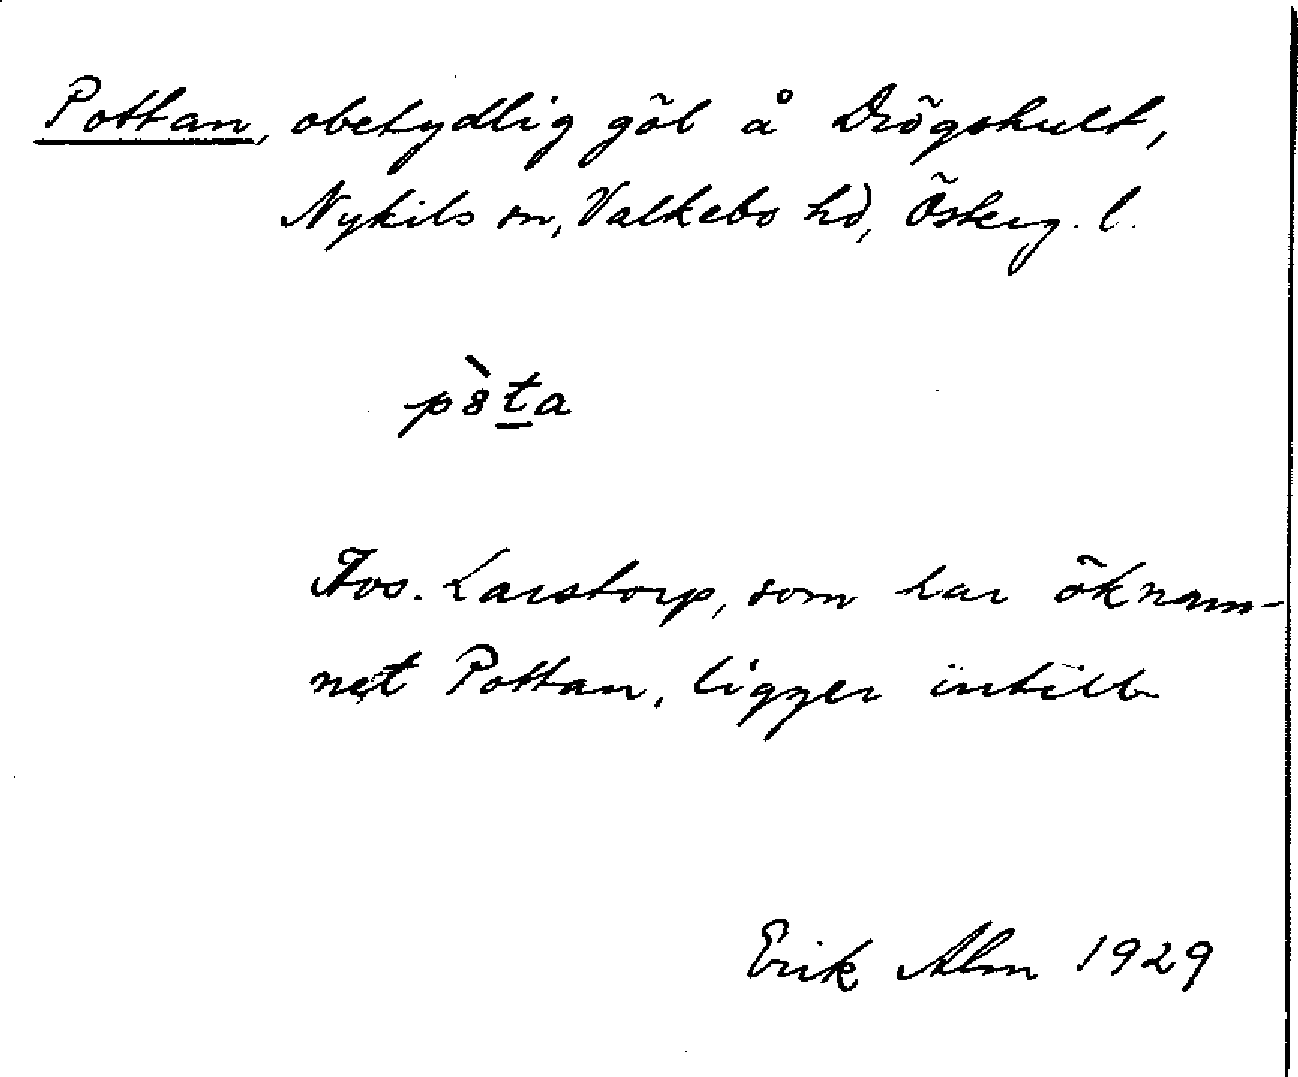 Pottan, obetydlig göl å Drögshult,
Nykils sn, Valkebo hd, Österg. l.
pòta
Avs. Larstorp, som har öknam-
net Pottan, ligger intill
Erik Alm 1929